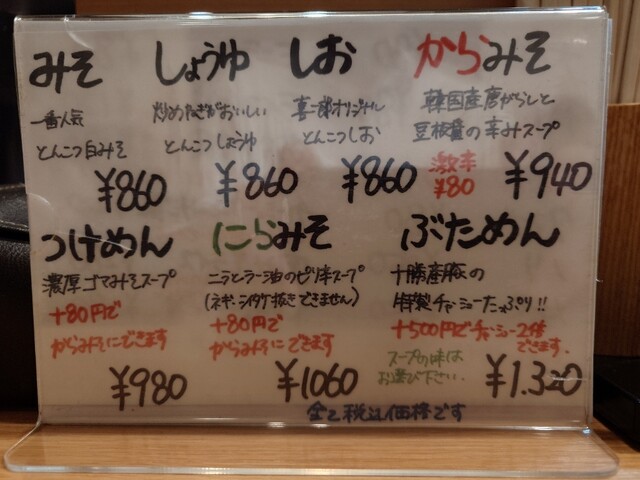 みそ
一番人気
とんこつ白みそ
¥860
しょうゆ
炒めたねぎがおいしい
とんこつしょうゆ
¥860
しお
喜一郎オリジナル
とんこつしお
¥860
からみそ
韓国産唐がらしと
豆板醤の辛みスープ
激辛
¥80
¥940
つけめん
濃厚ゴマみそスープ
+80円で
からみそにできます
¥980
にらみそ
ニラとラー油のピリ辛スープ
(ネギ・シイタケ抜きできません)
+80円で
からみそにできます
¥1060
ぶためん
十勝産豚の
特製チャーシューたっぷり!!
+500円でチャーシュー2倍
できます.
スープの味は
お選び下さい.
¥1.320
全て税込価格です